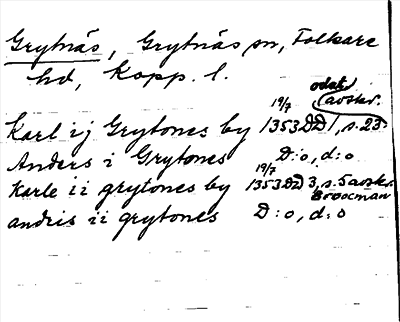 Grytnäs, Grytnäs sn, Folkare
hd, Kopp. l.
odat.
19/7 (avskr.
Karl ij Grytones by 1353 DD 1, s. 23.
Anders i Grytones D:o, d:o
19/7
Karle ii grytones by 1353 DD 3, s. 5 avskr.
Broocman
andris ii grytones D:o, d:o